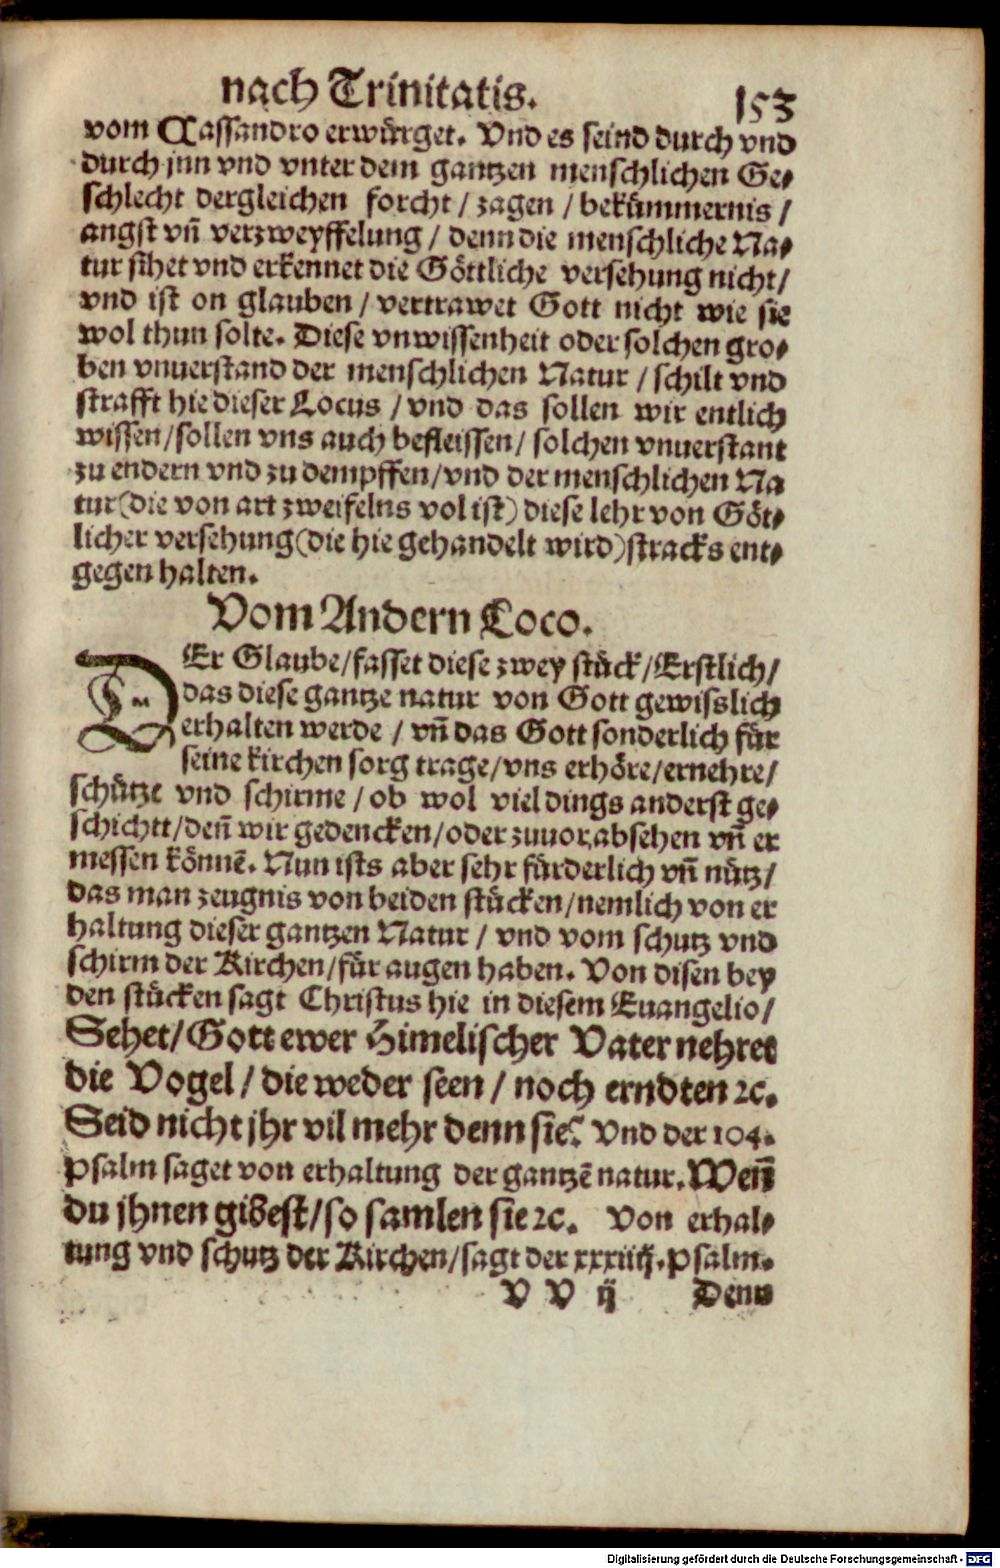 nach Trinitatis.
153
vom Cassandro erwürget. Vnd es seind durch vnd
durch jnn vnd vnter dem gantzen menschlichen Ge⸗
schlecht dergleichen forcht / zagen / bekümmernis /
angst vñ verzweyffelung / denn die menschliche Na⸗
tur sihet vnd erkennet die Göttliche versehung nicht /
vnd ist on glauben / vertrawet Gott nicht wie sie
wol thun solte. Diese vnwissenheit oder solchen gro⸗
ben vnuerstand der menschlichen Natur / schilt vnd
strafft hie dieser Locus / vnd das sollen wir entlich
wissen / sollen vns auch befleissen / solchen vnuerstant
zu endern vnd zu dempffen / vnd der menschlichen Na
tur (die von art zweifelns vol ist) diese lehr von Göt⸗
licher versehung (die hie gehandelt wird) stracks ent⸗
gegen halten.
Vom Andern Loco.
DEr Glaube / fasset diese zwey stück / Erstlich /
das diese gantze natur von Gott gewisslich
erhalten werde / vñ das Gott sonderlich für
seine kirchen sorg trage / vns erhöre / ernehre /
schütze vnd schirme / ob wol viel dings anderst ge⸗
schichtt / deñ wir gedencken / oder zuuor absehen vñ er
messen könnē. Nun ists aber sehr fürderlich vñ nütz /
das man zeugnis von beiden stücken / nemlich von er
haltung dieser gantzen Natur / vnd vom schutz vnd
schirm der Kirchen / für augen haben. Von disen bey
den stücken sagt Christus hie in diesem Euangelio /
Sehet / Gott ewer Himelischer Vater nehret
die Vogel / die weder seen / noch erndten ꝛc.
Seid nicht jhr vil mehr denn sie? Vnd der 104.
Psalm saget von erhaltung der gantzē natur. Weñ
du jhnen gibest / so samlen sie ꝛc. Von erhal⸗
tung vnd schutz der Kirchen / sagt der xxxiiij. Psalm.
V V ij Denn
Digitalisierung gefördert durch die Deutsche Forschungsgemeinschaft - DFG